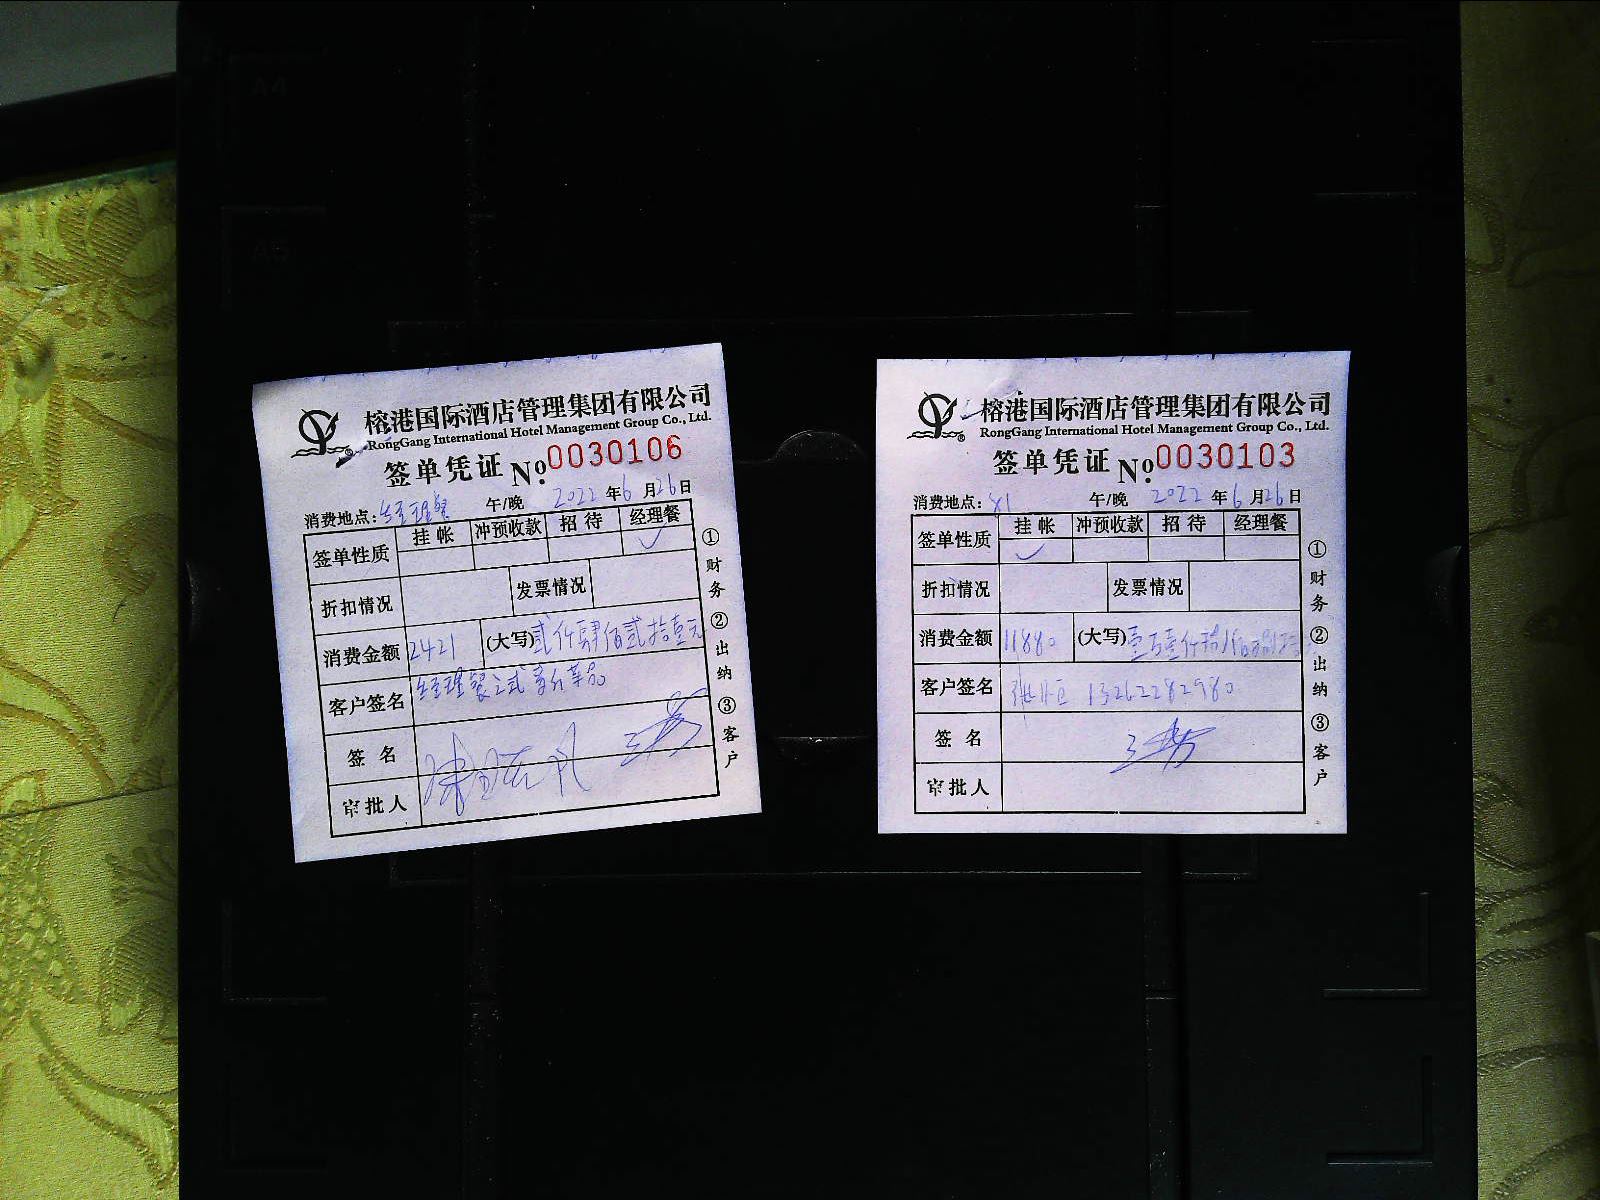 A4
A5
榕港国际酒店管理集团有限公司
RongGang International Hotel Management Group Co., Ltd.
签单凭证 No. 0030106
消费地点: 经理餐 午/晚 2022 年 6 月 26 日
签单性质 挂帐 冲预收款 招待 经理餐
✓
折扣情况 发票情况
消费金额 2421 (大写) 贰仟肆佰贰拾壹元
客户签名 经理餐
签名
审批人
①财务 ②出纳 ③客户
榕港国际酒店管理集团有限公司
RongGang International Hotel Management Group Co., Ltd.
签单凭证 No. 0030103
消费地点: 午/晚 2022 年 6 月 26 日
签单性质 挂帐 冲预收款 招待 经理餐
✓
折扣情况 发票情况
消费金额 11880 (大写) 壹万壹仟捌佰捌拾
客户签名 13262282980
签名
审批人
①财务 ②出纳 ③客户